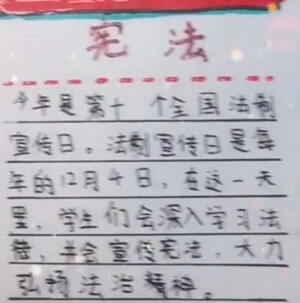 宪法
今年是第十个全国法制
宣传日。法制宣传日是每
年的12月4日，在这一天
里，学生们会深入学习法
律，并会宣传宪法，大力
弘扬法治精神。